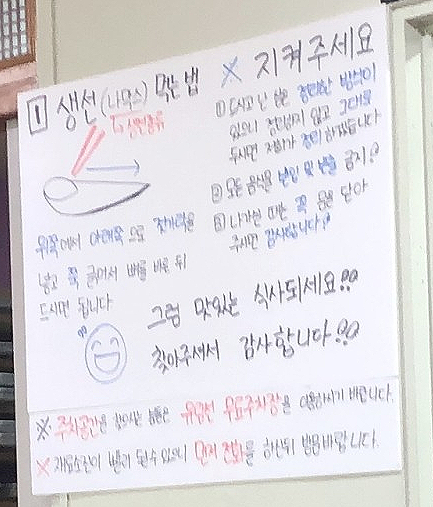 1 생선(나막스) 먹는 법
↳ 생선종류
위쪽에서 아래쪽으로 젓가락을
넣고 쭉 긁어서 뼈를 바른 뒤
드시면 됩니다
※ 지켜주세요
① 드시고 난 상은 정리한 방식이
있으니 정리하지 않고 그대로
두시면 저희가 정리 하겠습니다
② 모든 음식물 반입 및 반출 금지!
③ 나가실 때는 꼭 문을 닫아
주시면 감사합니다!
그럼 맛있는 식사되세요!!
찾아주셔서 감사합니다!!
※ 주차공간을 찾으시는 분들은 유람선 무료주차장을 이용하시기 바랍니다.
※ 재료소진이 빨리 될수있으니 먼저 전화를 하신뒤 방문바랍니다.